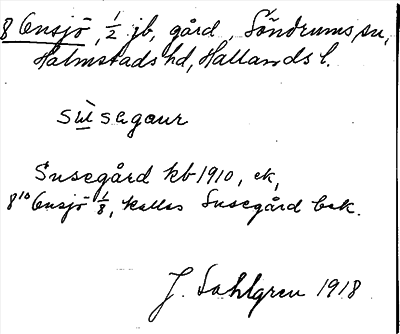 8 Ensjö, ½ jb, gård, Söndrums sn,
Halmstads hd, Hallands l.
Susegård kb 1910, ek,
8¹⁰ Ensjö ⅛, kallas Susegård bek.
J. Sahlgren 1918